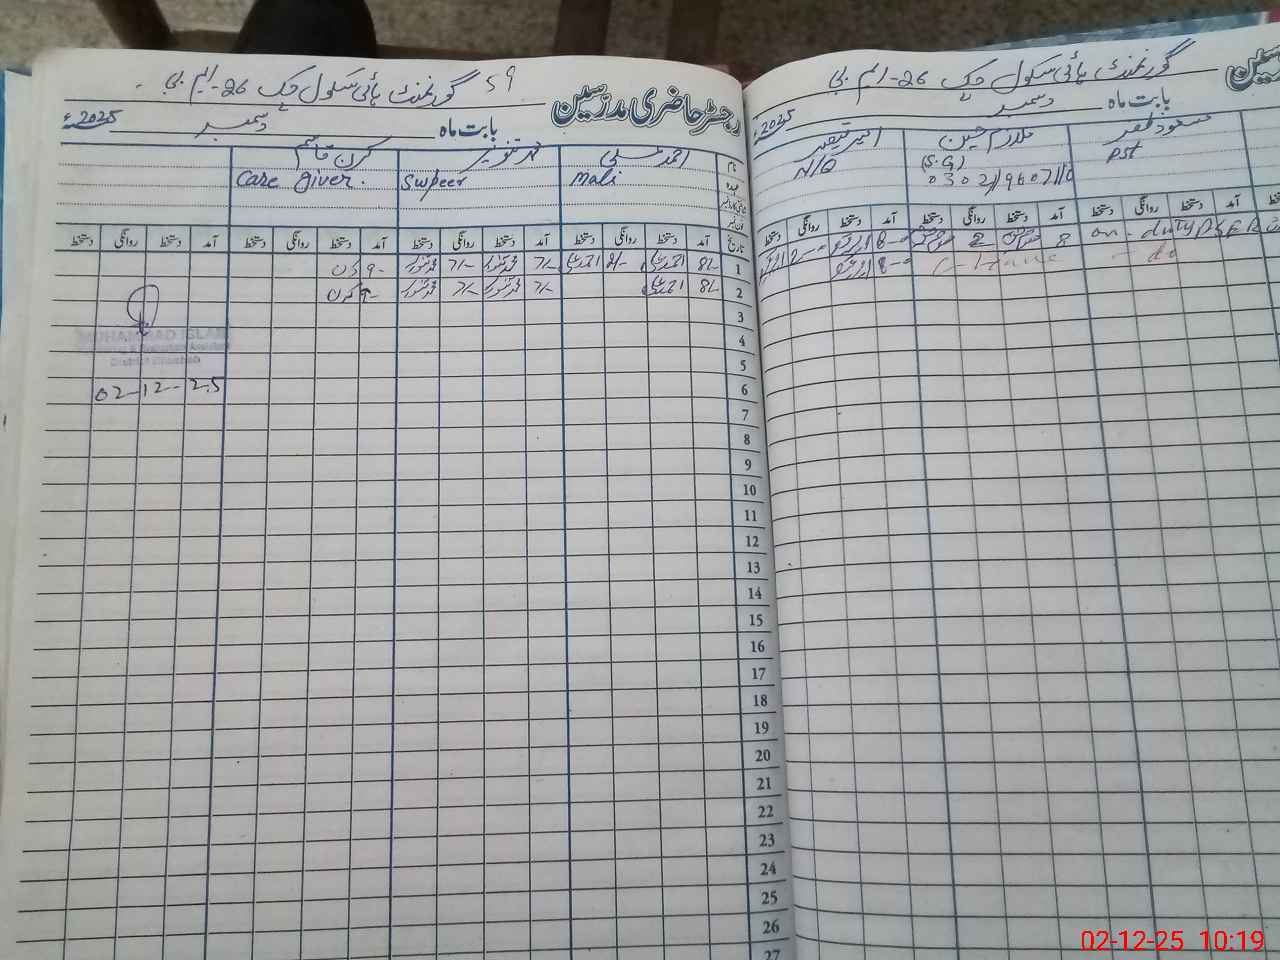 گورنمنٹ ہائی سکول چک 26-ایم بی
59
رجسٹر حاضری مدرسین
بابت ماہ دسمبر 2025ء
نام احمد علی محمد تنویر کرن قاسم
عہدہ Mali Swpeer Care giver.
تاریخ آمد دستخط روانگی دستخط آمد دستخط روانگی دستخط آمد دستخط روانگی دستخط آمد دستخط روانگی دستخط
1 8/- احمد علی 2/- احمد علی 7/- محمد تنویر 7/- محمد تنویر 9- کرن
2 8/- احمد علی 7/- محمد تنویر 7/- محمد تنویر 9- کرن
3
4
5
6
7
8
9
10
11
12
13
14
15
16
17
18
19
20
21
22
23
24
25
26
27
MUHAMMAD ISLAM
02-12-25
گورنمنٹ ہائی سکول چک 26-ایم بی
بابت ماہ دسمبر 2025ء
مسعود ظفر ملازم حسین امیر قیصر
PST (S.G) N/Q
آمد دستخط روانگی دستخط آمد دستخط روانگی دستخط آمد دستخط روانگی دستخط
on - duty PSER 8 2 8-0
8-0
02-12-25 10:19